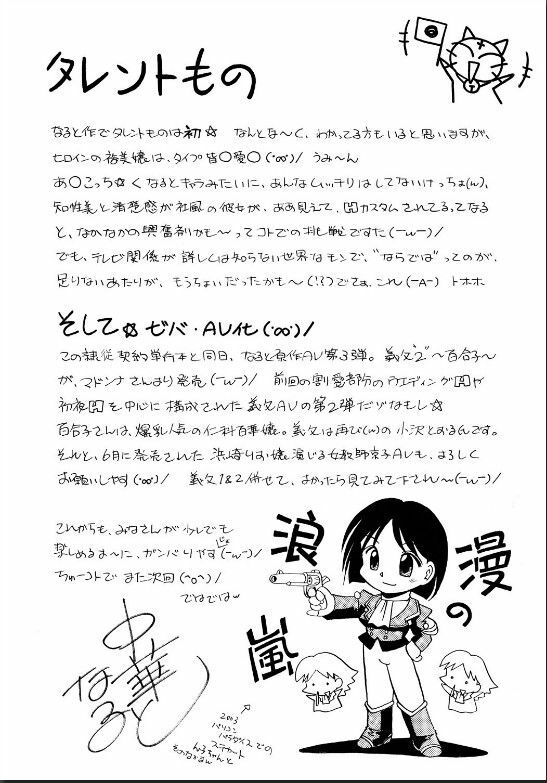 タレントもの
なると作でタレントものは初☆ なんとな〜く、わかってる方もいると思いますが、
ヒロインの裕美嬢は、タイプ皆○愛○(・∞・)/ うみ〜ん
あ○こっち☆くなるとキャラみたいに、あんなムッチリはしてないけっちょ(w)、
知性美と清楚感が社風の彼女が、ああ見えて、図カスタムされてるってなる
と、なかなかの興奮剤かも〜ってコトでの挑戦ですた(ーωー)/
でも、テレビ関係が詳しくは知らない世界なモンで、"ならでは"ってのが、
足りないあたりが、もうちょいだったかも〜(!?)でてぉ、これ(ーAー) トホホ
そして☆ ゼバ・AV化(・∞・)/
この隷従契約単行本と同日、なると原作AV第3弾。義父"2"〜百合子〜
が、マドンナさんより発売(ーωー)/ 前回の割愛部のウエディング図や
初夜図を中心に構成された義父AVの第2弾だゾなもし☆
百合子さんは、爆乳人気の仁科百華嬢。義父は再び(w)の小沢とおるんです。
それと、6月に発売された浜崎りお嬢演じる女教師京子AVも、よろしく
お願いしやす(・∞・)/ 義父1&2併せて、よかったら見てみて下さん〜(ーωー)/
これからも、みなさんが少しでも
楽しめるよーに、ガンバりやす(ーωー)/
ちゅーコトで また次回(^o^)/
ではではw
浪漫の嵐
中華なると
2003